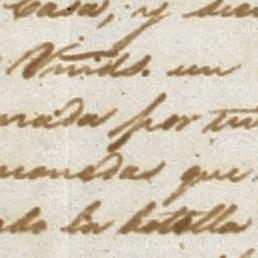 casa, y
Vmds. un
rada por tu
monedas que
do la botella